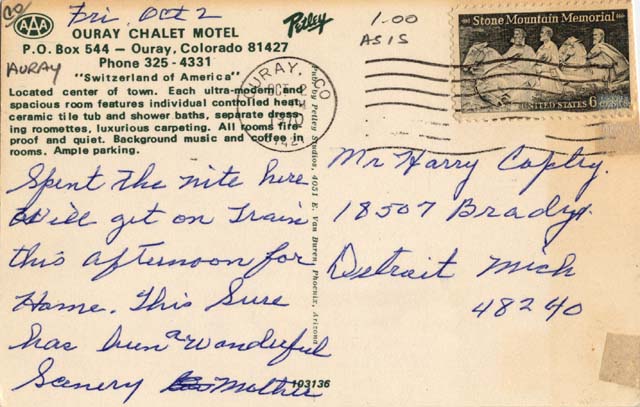 CO
Fri, Oct 2
AAA
OURAY CHALET MOTEL
P.O. Box 544 — Ouray, Colorado 81427
Phone 325-4331
AURAY
"Switzerland of America"
Located center of town. Each ultra-modern and
spacious room features individual controlled heat,
ceramic tile tub and shower baths, separate dress-
ing roomettes, luxurious carpeting. All rooms fire-
proof and quiet. Background music and coffee in
rooms. Ample parking.
Spent the nite here
Will get on Train
this afternoon for
Home. This Sure
has been a wonderful
Scenery Mother
Petley
Pub. by Petley Studios, 4051 E. Van Buren, Phoenix, Arizona
103136
1.00
AS IS
OURAY, CO
OCT 2
Stone Mountain Memorial
UNITED STATES 6
Mr Harry Copley
18507 Brady
Detroit Mich
48240